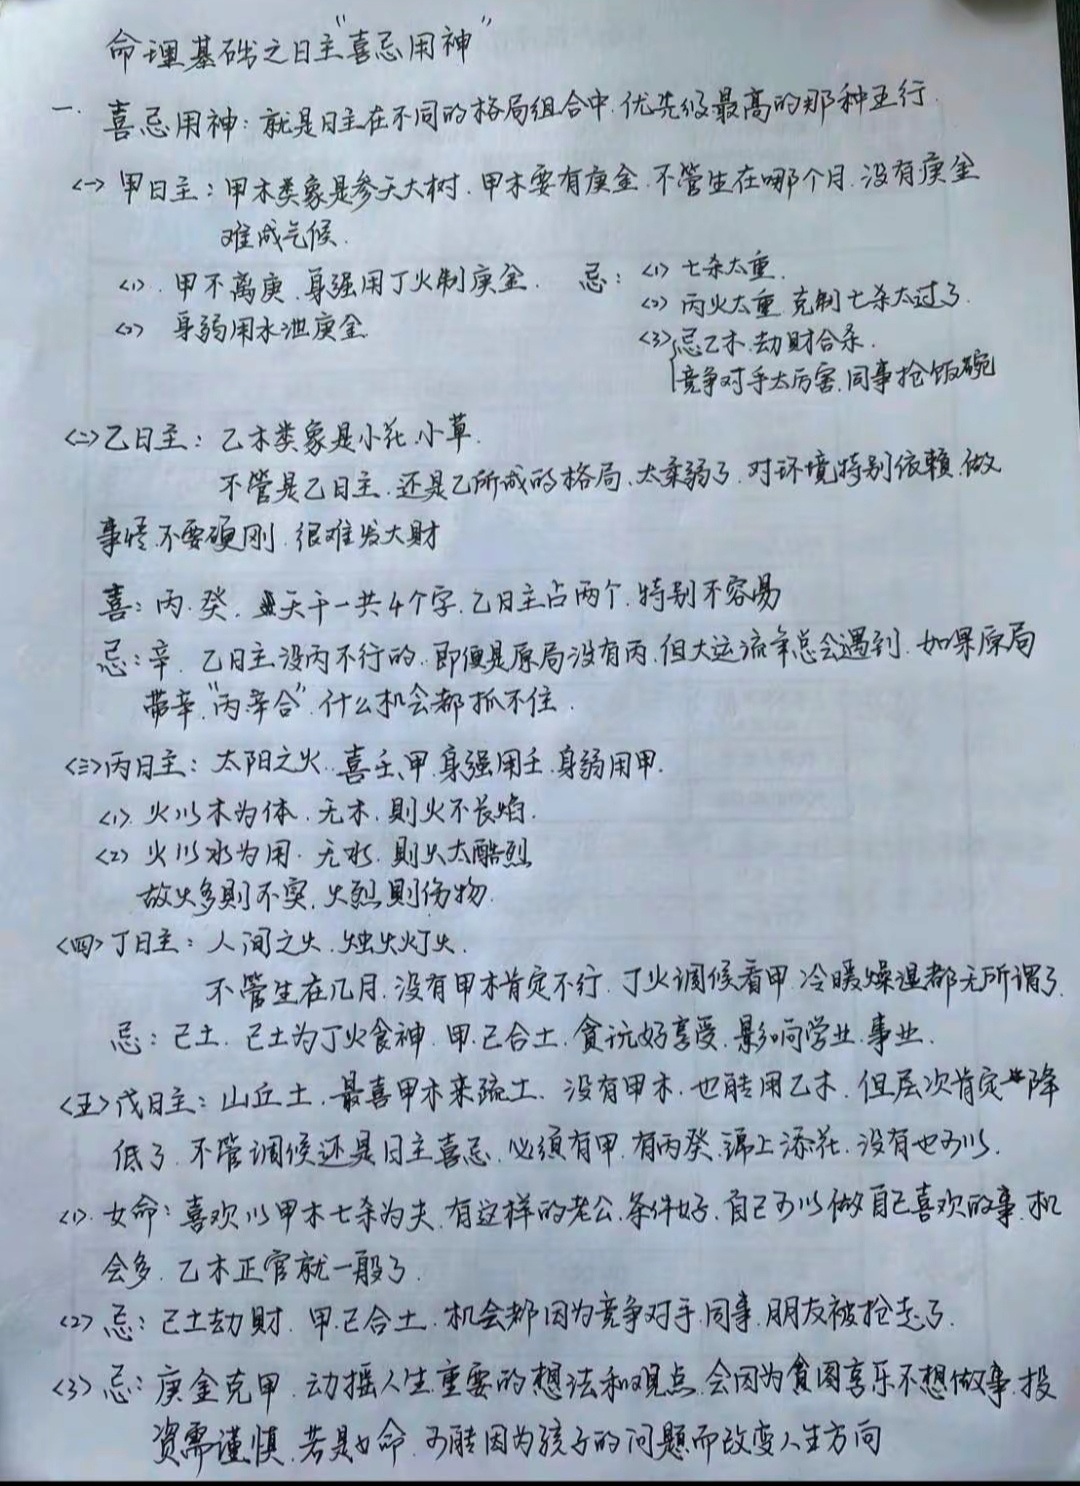 命理基础之日主"喜忌用神"
一. 喜忌用神: 就是日主在不同的格局组合中.优先级最高的那种五行.
<一> 甲日主: 甲木类象是参天大树. 甲木要有庚金. 不管生在哪个月. 没有庚金
难成气候.
<1>. 甲不离庚. 身强用丁火制庚金.
<2> 身弱用水泄庚金
忌: <1> 七杀太重.
<2> 丙火太重. 克制七杀太过了.
<3> 忌乙木. 劫财合杀.
竞争对手太厉害. 同事抢饭碗
<二>乙日主: 乙木类象是小花.小草.
不管是乙日主. 还是乙所成的格局、太柔弱了. 对环境特别依赖.做
事情.不要硬刚. 很难发大财
喜: 丙.癸. 天干一共4个字.乙日主占两个.特别不容易
忌: 辛. 乙日主没丙不行的. 即便是原局没有丙.但大运流年总会遇到. 如果原局
带辛."丙辛合". 什么机会都抓不住.
<三>丙日主: 太阳之火. 喜壬、甲.身强用壬.身弱用甲.
<1>. 火以木为体. 无木.则火不长焰.
<2> 火以水为用. 无水. 则火太酷烈
故火多则不实. 火烈则伤物.
<四>丁日主: 人间之火. 烛火灯火.
不管生在几月. 没有甲木肯定不行. 丁火调候看甲. 冷暖燥湿都无所谓了.
忌: 己土. 己土为丁火食神. 甲己合土. 贪玩好享受. 影响学业.事业.
<五>戊日主: 山丘土. 最喜甲木来疏土. 没有甲木.也能用乙木. 但层次肯定降
低了. 不管调候还是日主喜忌. 必须有甲.有丙癸.锦上添花.没有也可以.
<1>. 女命: 喜欢以甲木七杀为夫.有这样的老公.条件好.自己可以做自己喜欢的事.机
会多. 乙木正官就一般了.
<2> 忌: 己土劫财. 甲己合土. 机会都因为竞争对手.同事.朋友被抢走了.
<3> 忌: 庚金克甲. 动摇人生重要的想法和观点.会因为贪图享乐不想做事.投
资需谨慎.若是女命.可能因为孩子的问题而改变人生方向